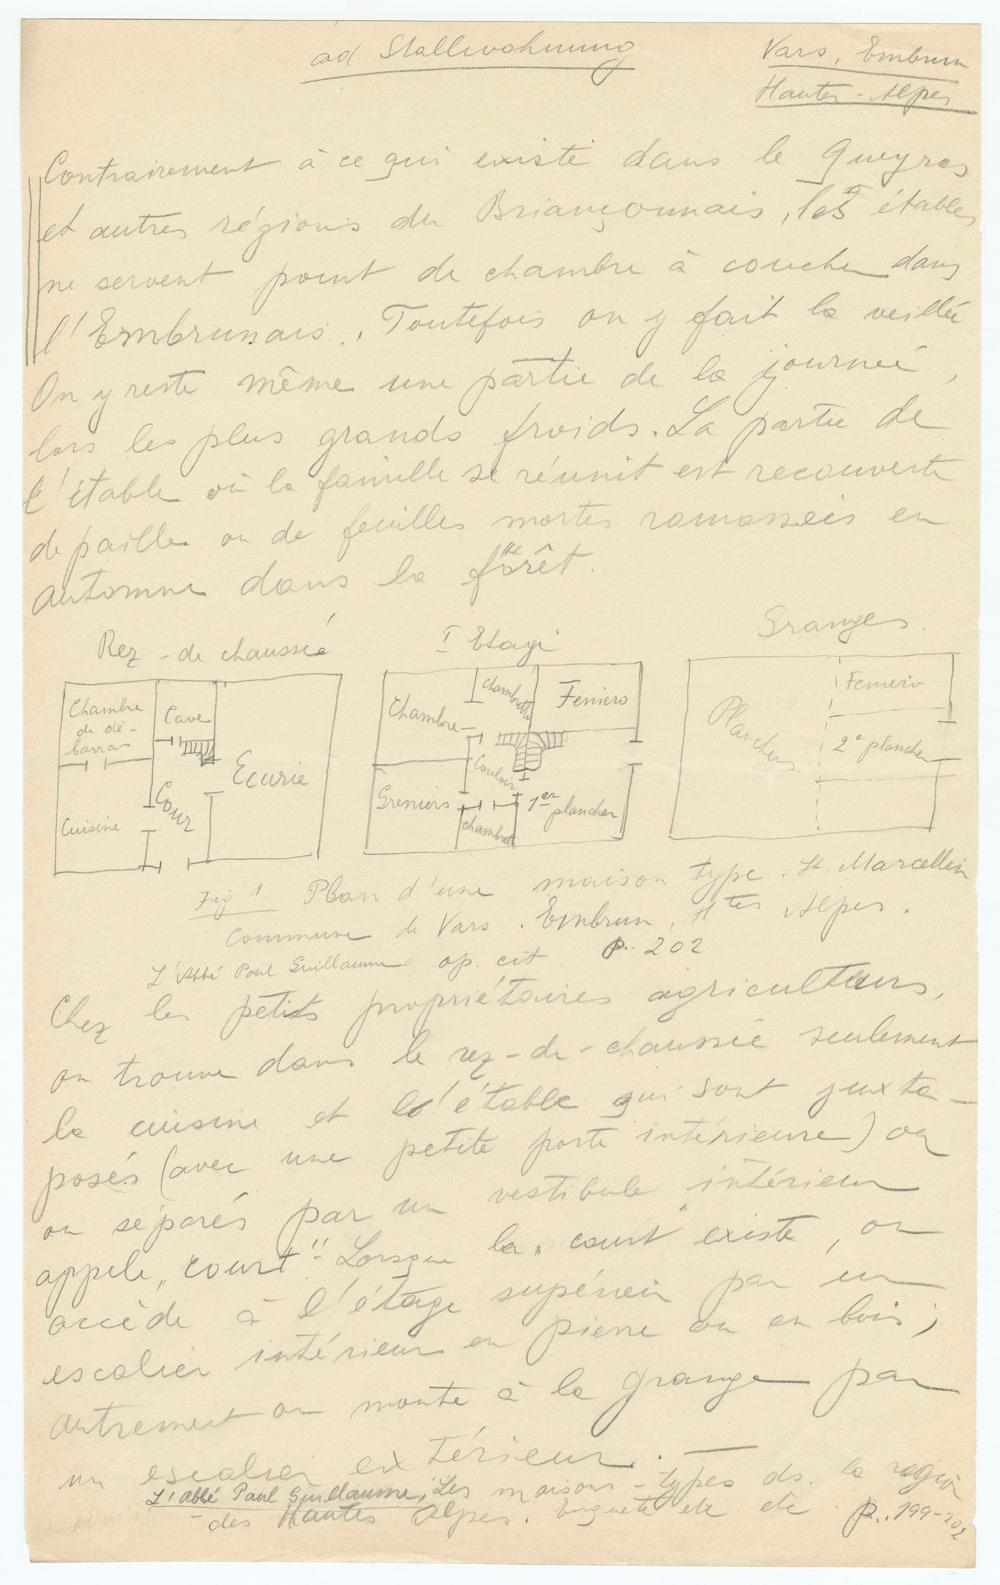 ad Stallwohnung
Vars, Embrun
Hautes-Alpes
Contrairement à ce qui existe dans le Queyras
et autres régions du Briançonnais, les étables
ne servent point de chambre à coucher dans
l'Embrunais. Toutefois on y fait la veillée
On y reste même une partie de la journée,
lors les plus grands froids. La partie de
l'étable où la famille se réunit est recouverte
de paille ou de feuilles mortes ramassées en
automne dans la forêt.
Rez-de chaussée
I Etage
Granges.
Chambre
de dé-
barras
Cave
Cuisine
Cour
Ecurie
Chambre
Chambrette
Feniero
Greniers
Couloir
chambre
1er plancher
Plancher
Feniero
2e plancher
Fig 1 Plan d'une maison type. St. Marcellin
Commune de Vars. Embrun, Htes Alpes.
L'Abbé Paul Guillaume op. cit. p. 202
Chez les petits propriétaires agriculteurs,
on trouve dans le rez-de-chaussée seulement
la cuisine et l'étable qui sont juxta-
posés (avec une petite porte intérieure) ou
ou séparés par un vestibule intérieur
appelé „court" Lorsque la „court" existe, on
accède à l'étage supérieur par un
escalier intérieur en pierre ou en bois;
autrement on monte à la grange par
un escalier extérieur. —
L'abbé Paul Guillaume, Les maisons-types ds. la région
des Hautes Alpes. Enquête etc etc p. 199-202